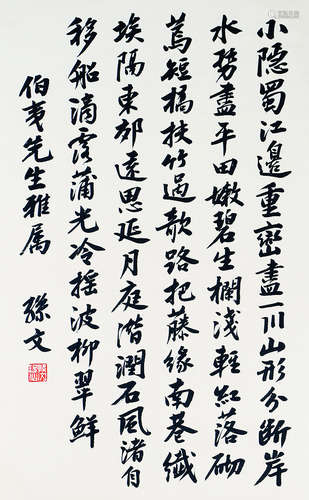 小隐蜀江邊重巒盡一川山形分斷岸
水勢盡平田嫩碧生欄淺輕紅落砌
蔫短橋扶竹過欹路把藤緣南巷纖
埃隔東郊遠思延月庭潛潤石風渚自
移船滴露蒲光冷搖波柳翠鮮
伯夷先生雅属
孫文